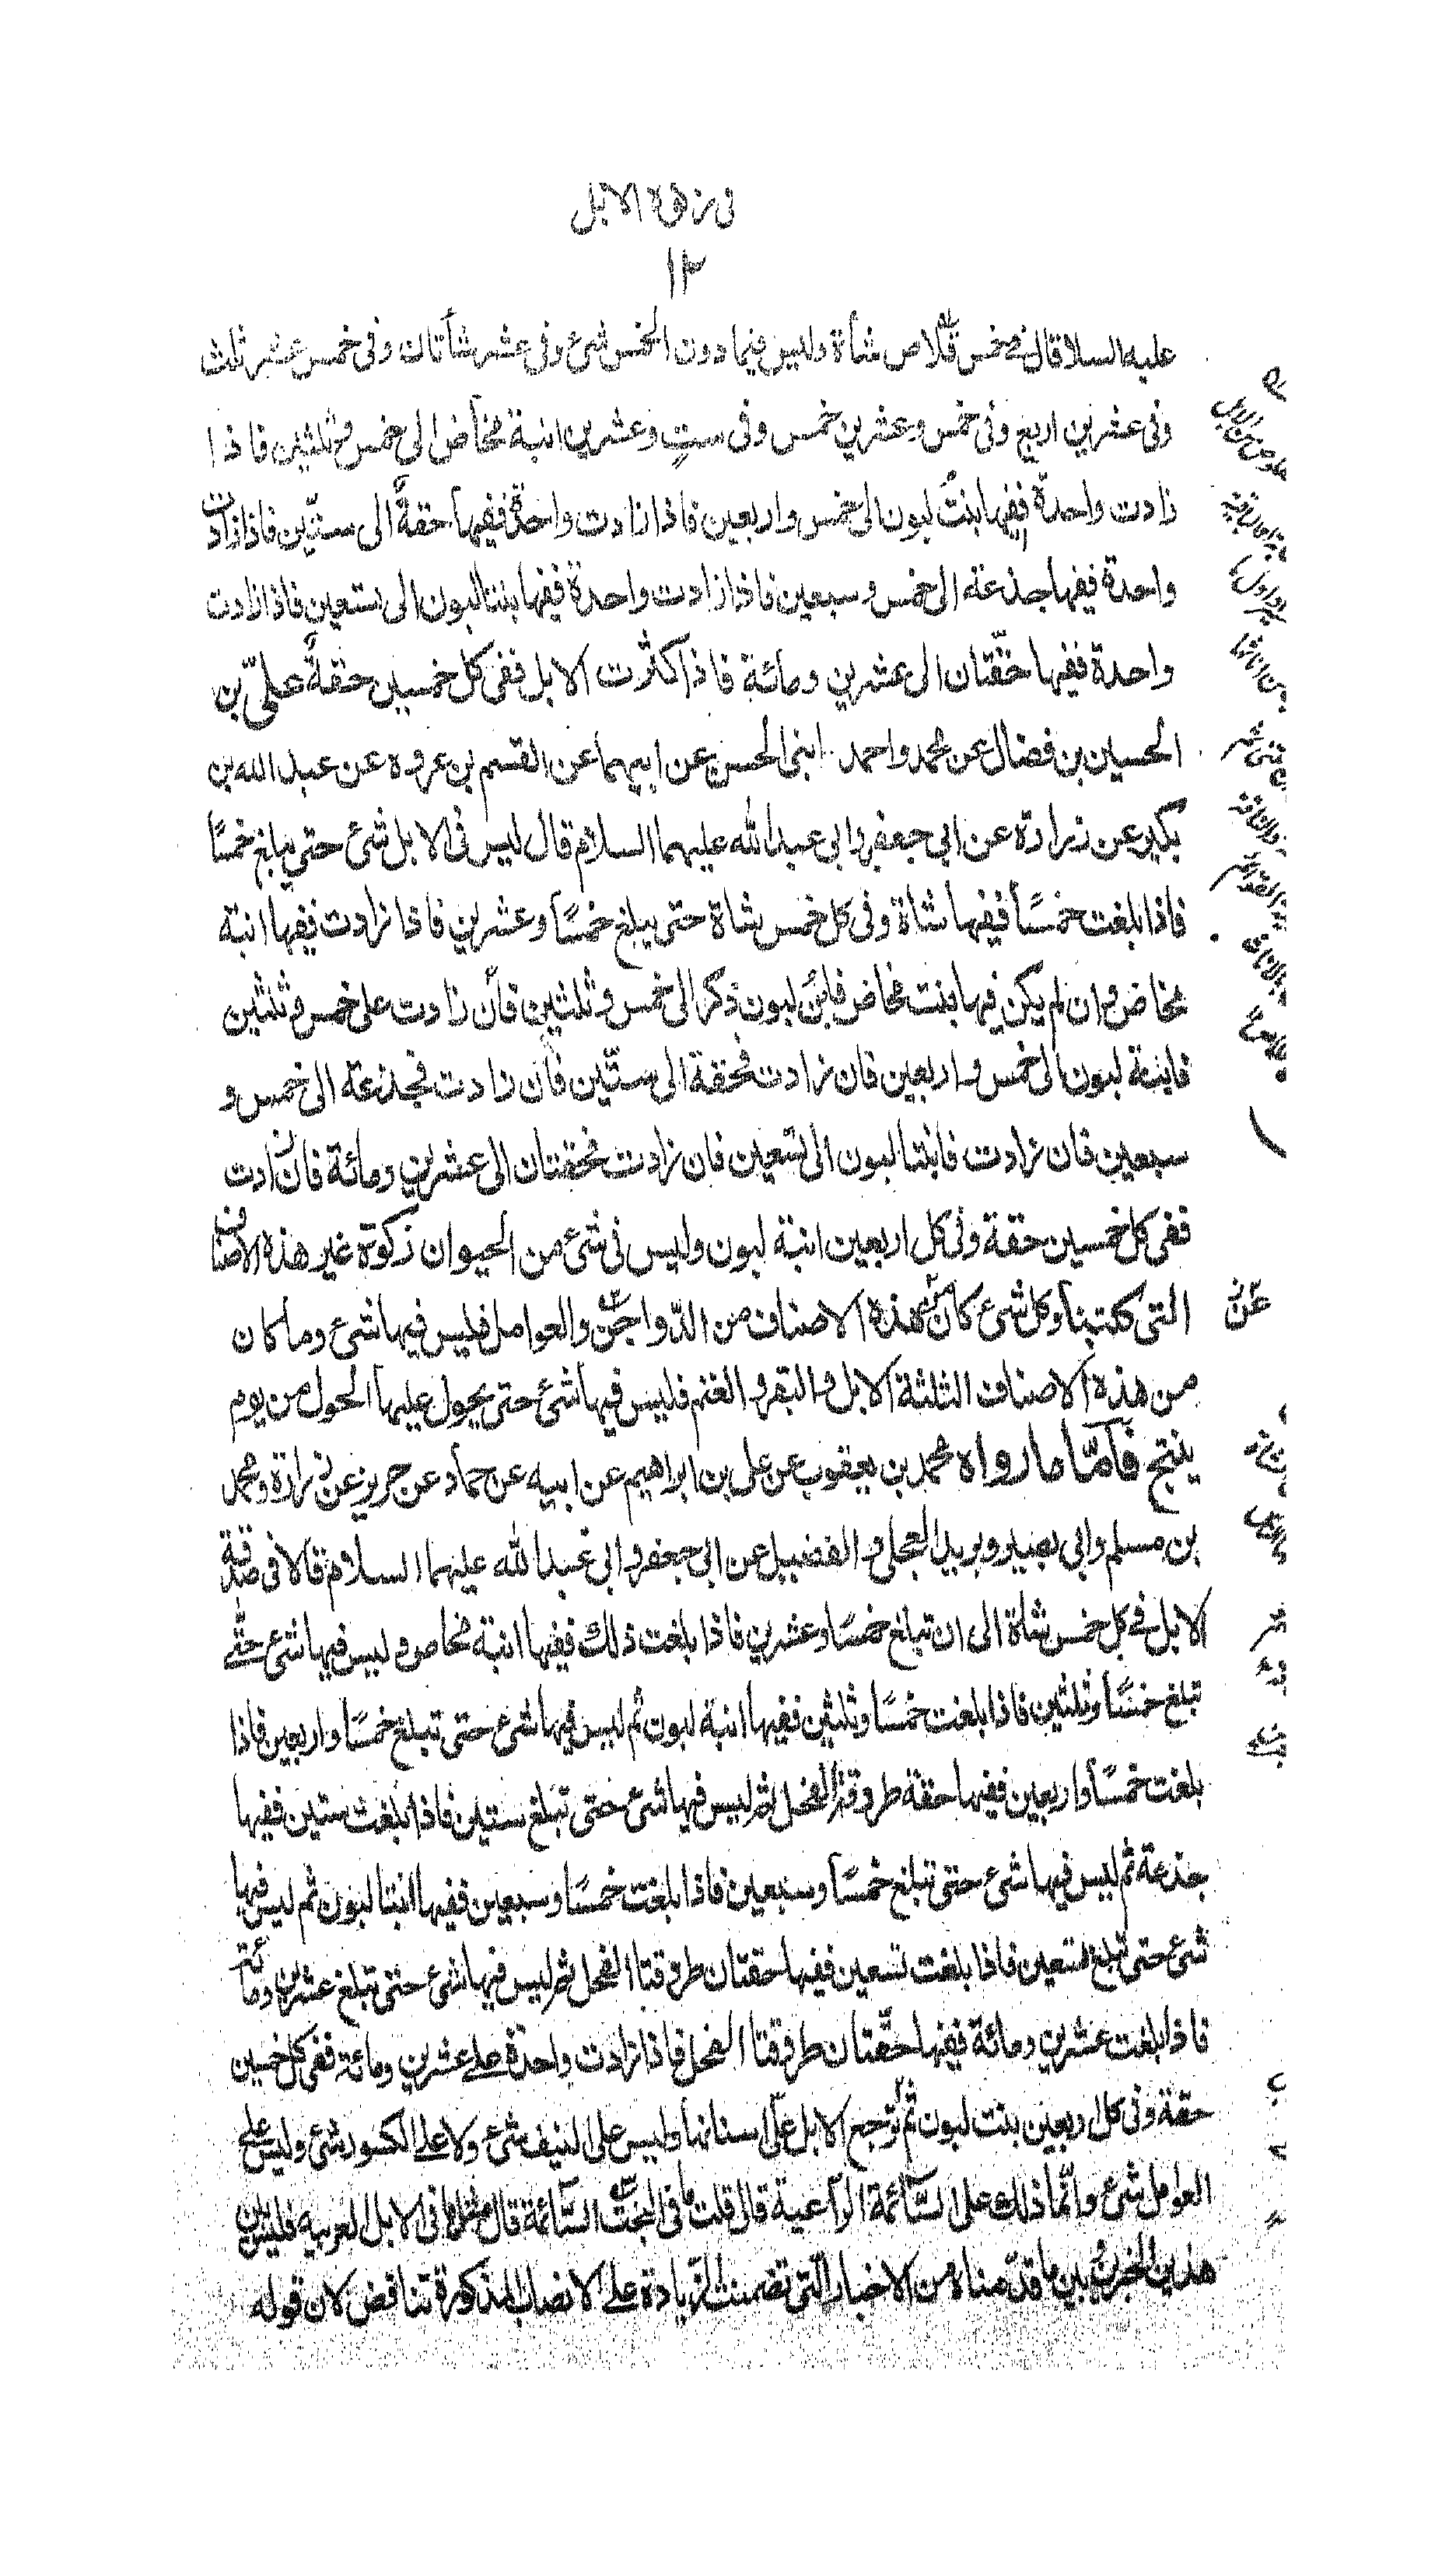 في زكوة الابل
١٢
عليه السلام قال في خمس قلاص شاة وليس فيما دون الخمس شئ وفى عشر شاتان وفى خمس عشر ثلث
وفى عشرين اربع وفى خمس وعشرين خمس وفى ست وعشرين ابنة مخاض الى خمس وثلثين فاذا
زادت واحدة ففيها ابنت لبون الى خمس واربعين فاذا زادت واحدة ففيها حقة الى ستين فاذا زادت
واحدة ففيها جذعة الى خمس وسبعين فاذا زادت واحدة ففيها بنتا لبون الى تسعين فاذا زادت
واحدة ففيها حقتان الى عشرين ومائة فاذا كثرت الابل ففى كل خمسين حقة علي بن
الحسين بن فضال عن محمد واحمد ابنى الحسن عن ابيهما عن القسم بن عروه عن عبد الله بن
بكير عن زرارة عن ابي جعفر وابى عبد الله عليهما السلام قال ليس فى الابل شئ حتى يبلغ خمسا
فاذا بلغت خمسا ففيها شاة وفى كل خمس شاة حتى يبلغ خمسا وعشرين فاذا زادت ففيها ابنة
مخاض وان لم يكن فيها بنت مخاض فابن لبون ذكر الى خمس وثلثين فان زادت على خمس وثلثين
فابنة لبون الى خمس واربعين فان زادت فحقة الى ستين فان زادت فجذعة الى خمس و
سبعين فان زادت فابنتا لبون الى تسعين فان زادت فحقتان الى عشرين ومائة فان زادت
ففى كل خمسين حقة وفى كل اربعين ابنة لبون وليس فى شئ من الحيوان زكوة غير هذه الاصناف
التى كتبنا وكل شئ كان من هذه الاصناف من الدواجن والعوامل فليس فيها شئ وما كان
عن
من هذه الاصناف الثلثة الابل والبقر والغنم فليس فيها شئ حتى يحول عليها الحول من يوم
ينتج فاما ما رواه محمد بن يعقوب عن على بن ابراهيم عن ابيه عن حماد عن حريز عن زرارة ومحمد
بن مسلم وابى بصير وبريد العجلى والفضيل عن ابى جعفر وابى عبد الله عليهما السلام قالا فى صدقة
الابل في كل خمس شاة الى ان تبلغ خمسا وعشرين فاذا بلغت ذلك ففيها ابنة مخاض وليس فيها شئ حتى
تبلغ خمسا وثلثين فاذا بلغت خمسا وثلثين ففيها ابنة لبون ثم ليس فيها شئ حتى تبلغ خمسا واربعين فاذا
بلغت خمسا واربعين ففيها حقة طروقة الفحل ثم ليس فيها شئ حتى تبلغ ستين فاذا بلغت ستين ففيها
جذعة ثم ليس فيها شئ حتى تبلغ خمسا وسبعين فاذا بلغت خمسا وسبعين ففيها ابنتا لبون ثم ليس فيها
شئ حتى تبلغ تسعين فاذا بلغت تسعين ففيها حقتان طروقتا الفحل ثم ليس فيها شئ حتى تبلغ عشرين ومائة
فاذا بلغت عشرين ومائة ففيها حقتان طروقتا الفحل فاذا زادت واحدة على عشرين ومائة ففى كل خمسين
حقة وفى كل اربعين بنت لبون ثم ترجع الابل على اسنانها وليس على النيف شئ ولا على الكسور شئ وليس على
العوامل شئ وانما ذلك على السائمة الراعية قال قلت ما فى البخت السائمة قال مثل ما فى الابل العربيه فليس بين
هذين الخبرين وبين ما قدمناه من الاخبار التى تضمنت الزيادة على الانصاب المذكورة تناقض لان قوله